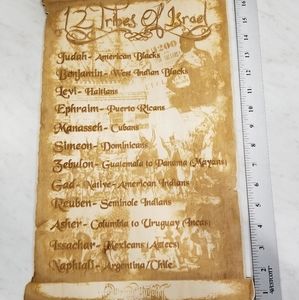 12 Tribes Of Israel
Judah - American Blacks
Benjamin - West Indian Blacks
Levi - Haitians
Ephraim - Puerto Ricans
Manasseh - Cubans
Simeon - Dominicans
Zebulon - Guatemala to Panama (Mayans)
Gad - Native-American Indians
Reuben - Seminole Indians
Asher - Columbia to Uruguay (Incas)
Issachar - Mexicans (Aztecs)
Naphtali - Argentina/Chile
$200
16
15
14
13
12
11
10
9
8
7
6
5
4
3
2
1
WESTCOTT